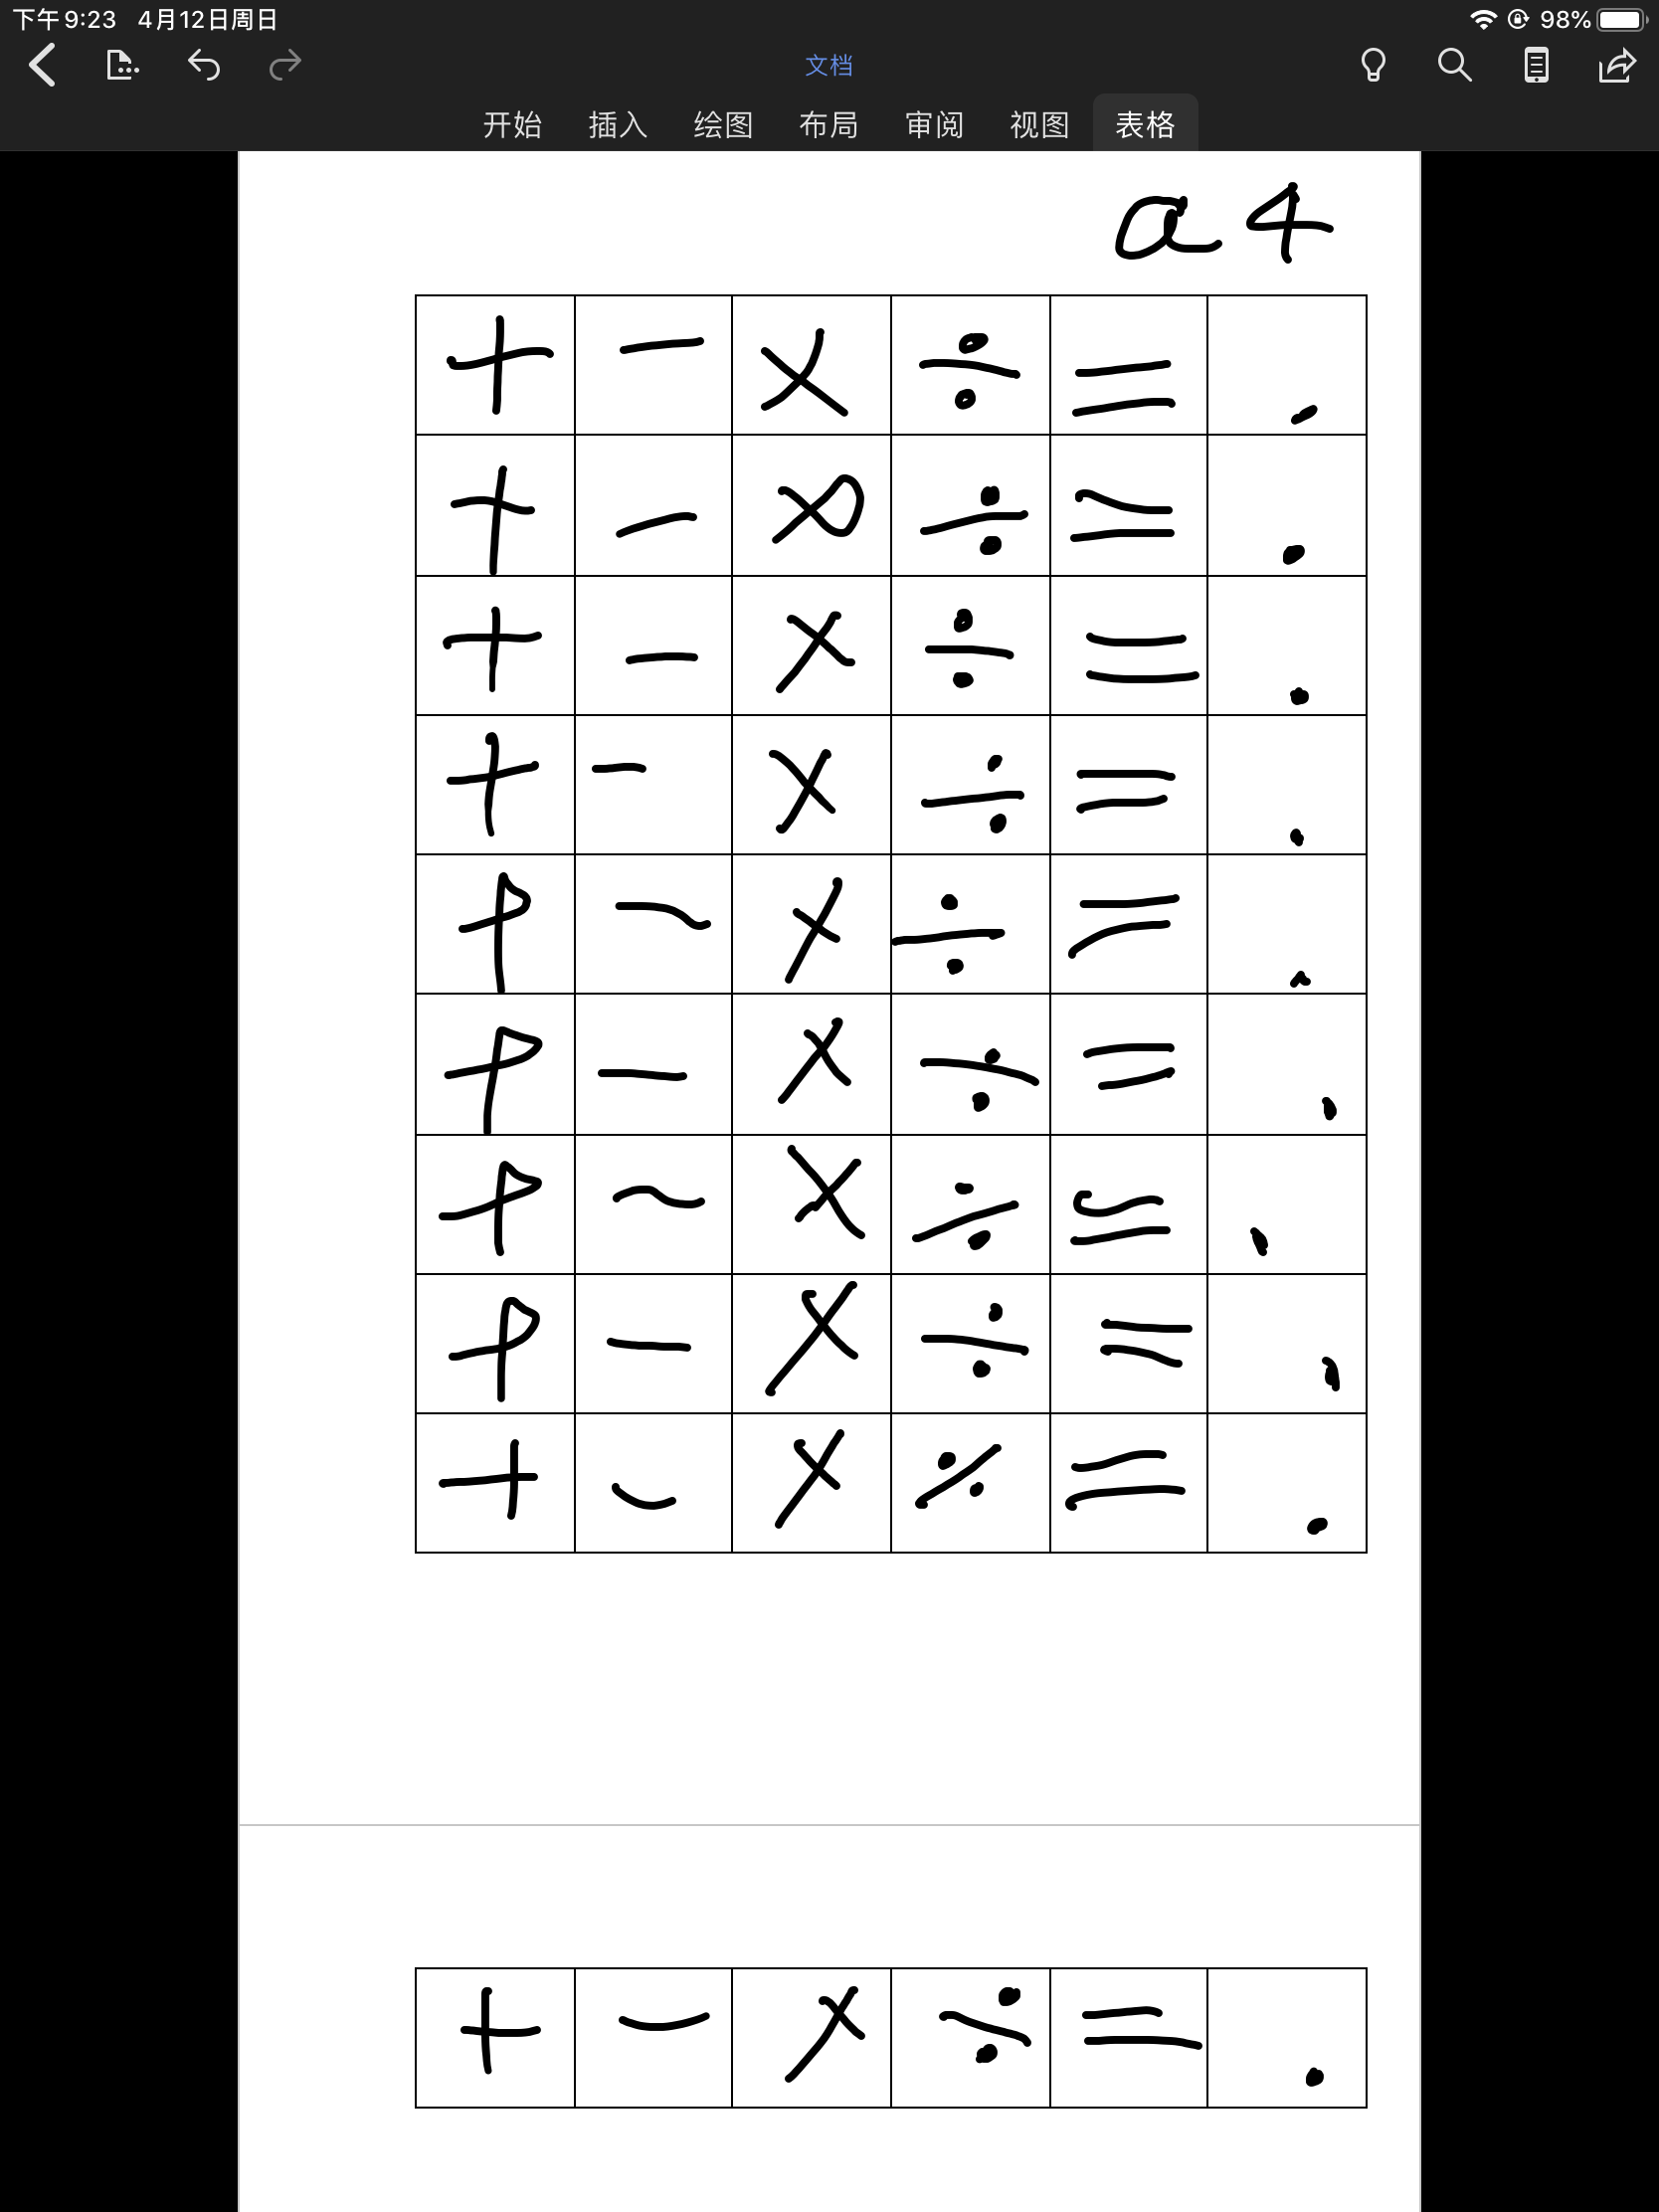 下午9:23 4月12日周日 98%
文档
开始 插入 绘图 布局 审阅 视图 表格
a4
+ − × ÷ = .
+ − × ÷ = .
+ − × ÷ = .
+ − × ÷ = .
+ − × ÷ = .
+ − × ÷ = .
+ − × ÷ = .
+ − × ÷ = .
+ − × ÷ = .
+ − × ÷ = .